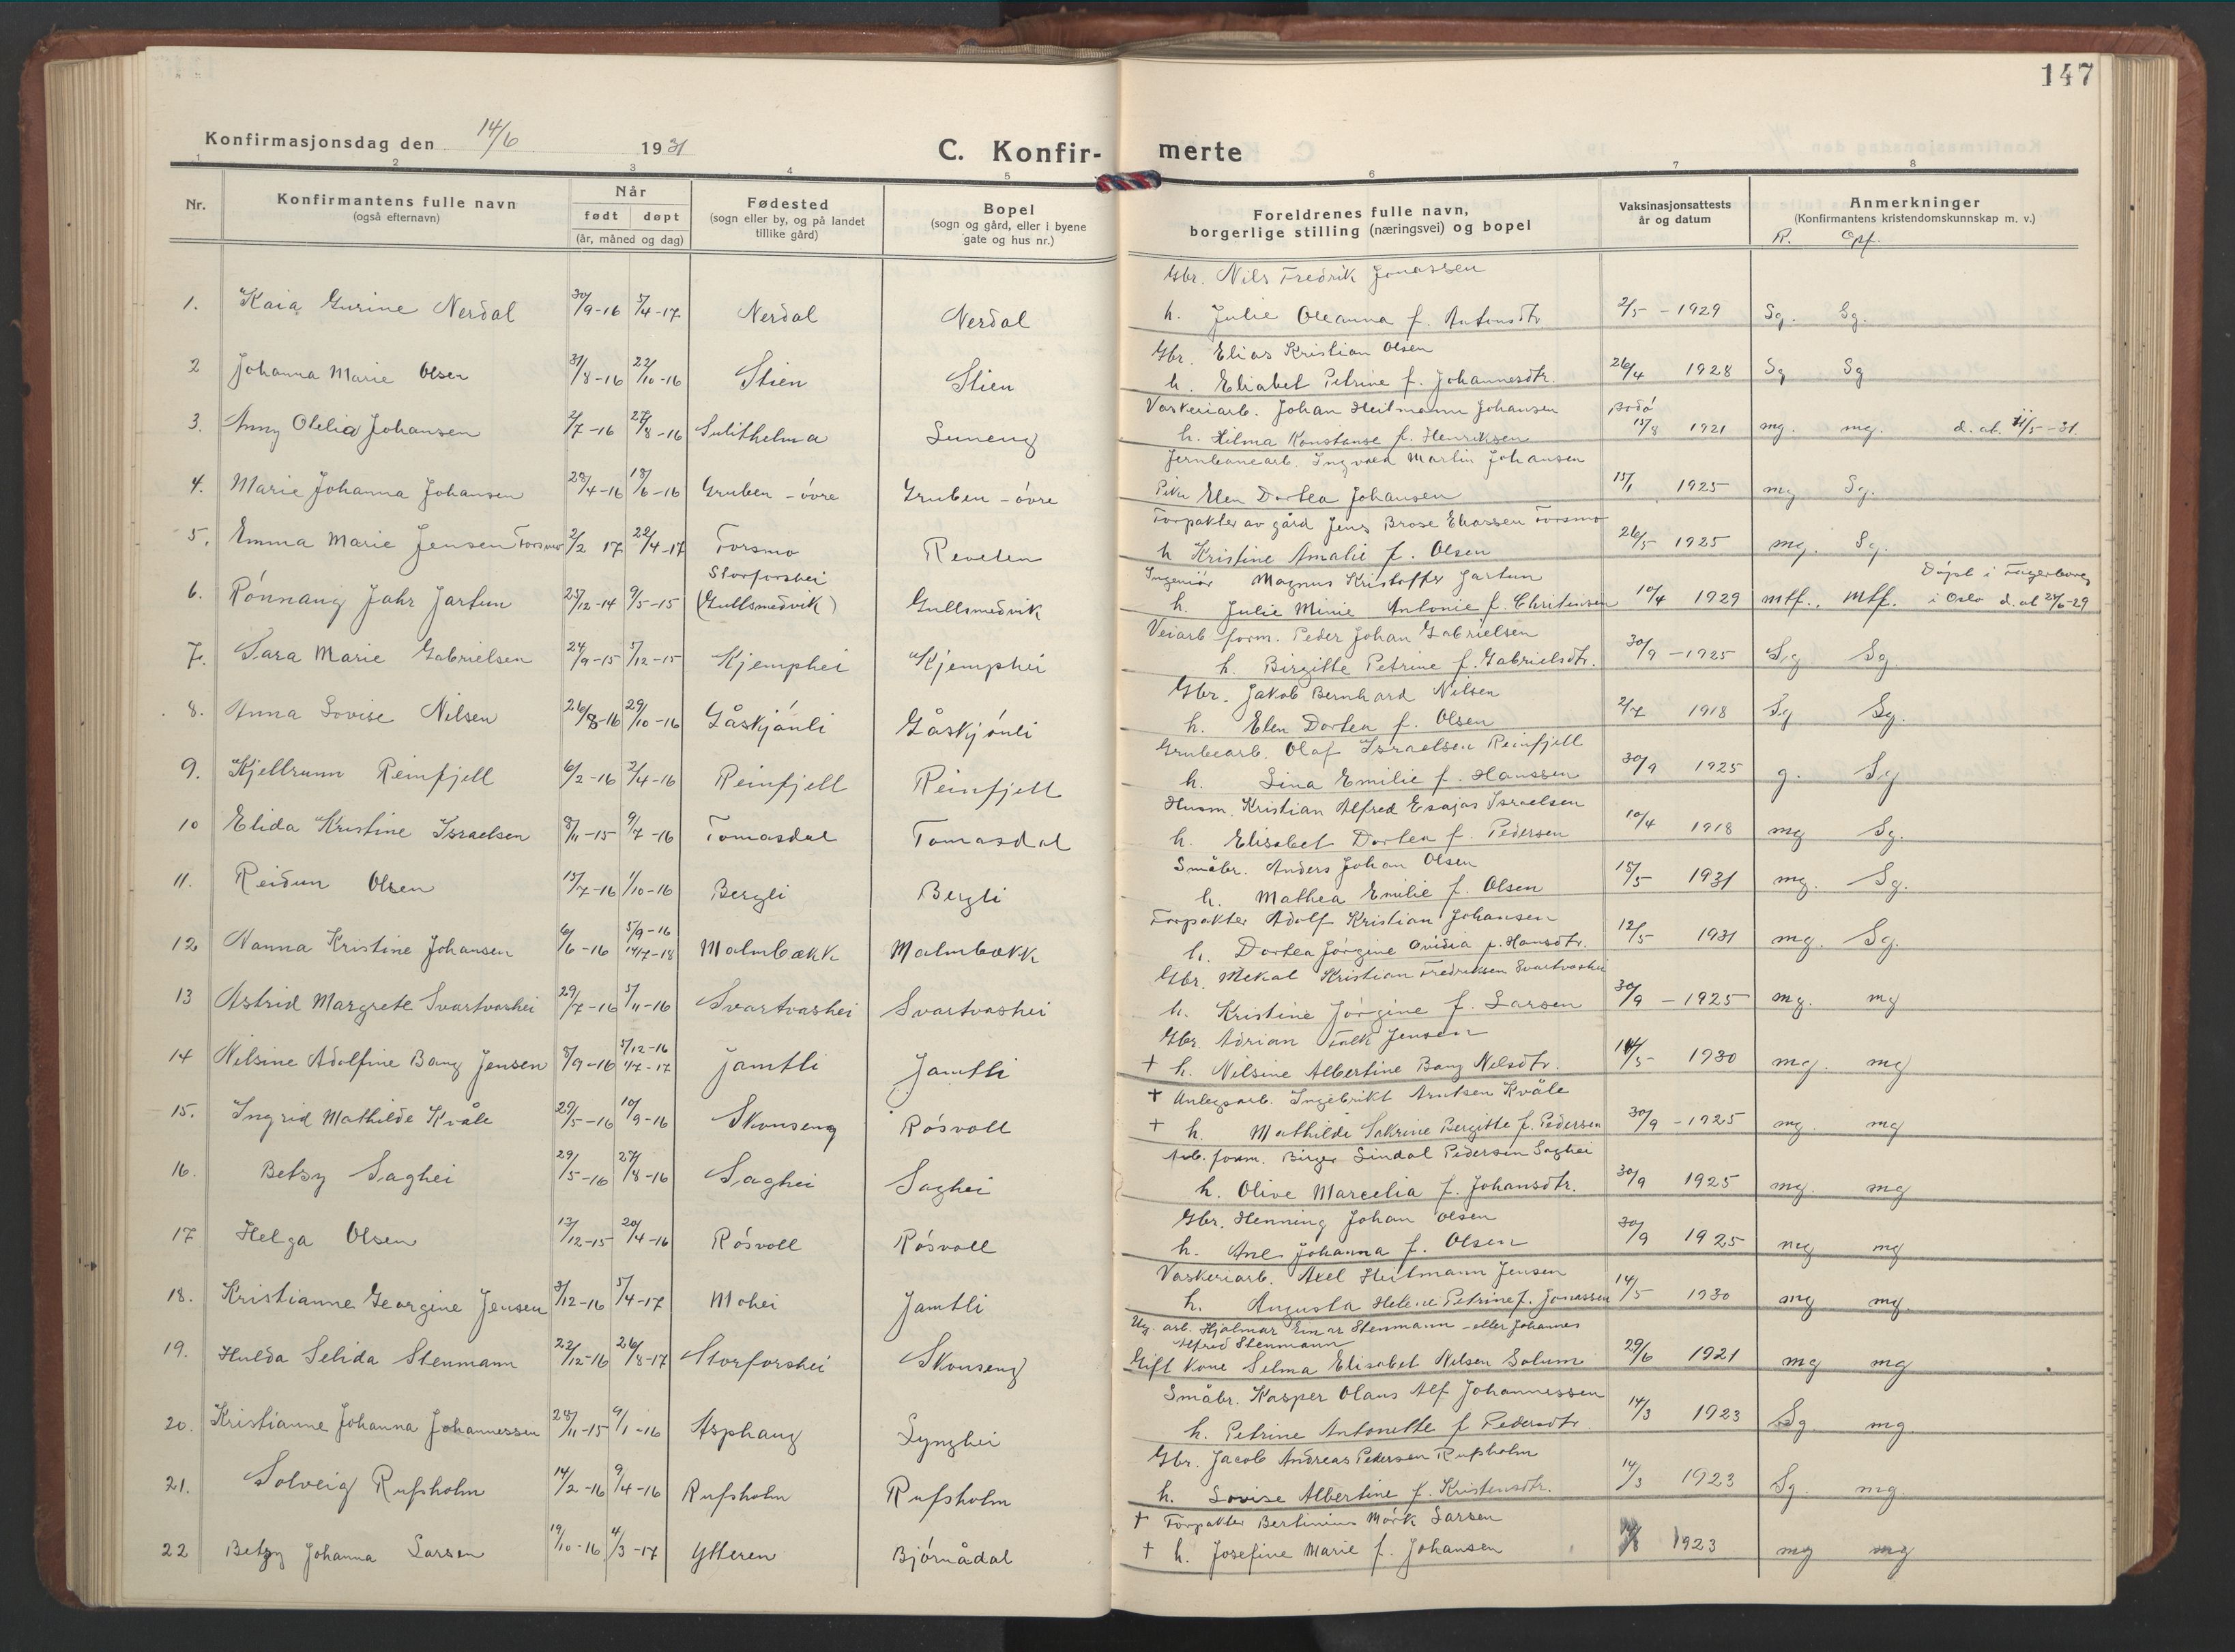 147
Konfirmasjonsdag den 14/6 1931
C. Konfir- merte
1 2 3 4 5 6 7 8
Nr.
Konfirmantens fulle navn
(også efternavn)
Når
født døpt
(år, måned og dag)
Fødested
(sogn eller by, og på landet
tillike gård)
Bopel
(sogn og gård, eller i byene
gate og hus nr.)
Foreldrenes fulle navn,
borgerlige stilling (næringsvei) og bopel
Vaksinasjonsattests
år og datum
Anmerkninger
(Konfirmantens kristendomskunnskap m. v.)
R. Opf.
Gbr. Nils Fredrik Jonassen
1. Kaia Gurine Nerdal 30/9-16 5/4-17 Nerdal Nerdal h. Julie Oleanna f. Antonsdtr. 2/5 - 1929 Sg. Sg.
Gbr. Elias Kristian Olsen
2 Johanna Marie Olsen 31/8-16 22/10-16 Stien Stien h. Eliabet Petrine f. Johannesdtr. 26/4 1928 Sg Sg
Vaskeriarb. Johan Heitmann Johansen Bodø
3. Anny Otelia Johansen 2/7-16 27/8-16 Sulithelma Seneng h. Hilma Konstanse f. Henriksen 15/8 1921 mg. mg. d. at. 11/5-31.
Jernbanearb. Ingvald Martin Johansen
4. Marie Johanna Johansen 28/4-16 18/6-16 Gruben - óvre Gruben - óvre Pike Elen Dortea Johansen 15/1 1925 mg Sg.
Forpakter av gård Jens Brose Eliassen Forsmo
5. Emma Marie Jensen Forsmo 2/2 17 22/4-17 Forsmo Revelen h Kristine Amalie f. Olsen 26/5 1925 mg. Sg.
Storforshei Ingeniór Magnus Kristoffer Jartun Dópt i Fagerborg
6. Rónnaug Jahr Jartun 25/12-14 9/5-15 (Gullsmedvik) Gullsmedvik h. Julie Minie Antonie f. Christensen 10/4 1929 mtf.. Mtf. i Oslo d. at 24/6-29
Veiarb. form. Peder Johan Gabrielsen
7. Sara Marie Gabrielsen 24/9-15 5/12-15 Kjemphei Kjemphei h. Birgitte Petrine f. Gabrielsdtr. 30/9 - 1925 Sg Sg
Gbr. Jakob Bernhard Nilsen
8. Anna Lovise Nilsen 26/8-16 29/10-16 Gåskjónli Gåskjónli h. Elen Dortea f. Olsen 2/7 1918 Sg Sg.
Grubearb. Olaf Israelsen Reinfjell
9. Kjellrunn Reinfjell 6/2-16 2/4-16 Reinfjell Reinfjell h. Lina Emilie f. Hanssen 30/9 1925 g. Sg
Husm. Kristian Alfred Esajas Israelsen
10 Elida Kristine Israelsen 8/11-15 9/7-16 Tomasdal Tomasdal h. Elisabet Dortea f. Pedersen 10/4 1918 mg Sg.
Småbr. Anders Johan Olsen
11. Reidun Olsen 15/7-16 1/10-16 Bergli Bergli h. Mathea Emilie f. Olsen 15/5 1931 mg. Sg.
5/9-16 Forpakter Adolf Kristian Johansen
12 Nanna Kristine Johansen 6/6-16 14/7-18 Malmbækk Malmbækk h. Dortea Jórgine Ovidia f. Hansdtr. 12/5 1931 mg. Sg.
Gbr. Mekal Kristian Fredriksen Svartvashei
13 Astrid Margrete Svartvashei 29/7-16 5/11-16 Svartvashei Svartvashei h. Kristine Jórgine f. Larsen 30/9 - 1925 mg. mg
5/12-16 Gbr. Adrian Falk Jensen
14 Nilsine Adolfine Bang Jensen 8/9-16 1/7-17 Jamtli Jamtli + h. Nilsine Albertine Bang Nelsdtr. 14/5- 1930 mg. mg
+ Anlegsarb. Ingebrikt Arntsen Kvåle
15. Ingrid Mathilde Kvåle 29/5-16 10/9-16 Skonseng Rósvoll + h. Mathilde Sakrine Bergitte f. Pedersen 30/9 - 1925 mg. mg
Arb. form. Birger Lindal Pedersen Saghei
16. Betsy Saghei 29/5-16 27/8-16 Saghei Saghei h. Olive Marcelia f. Johansdtr. 30/9 1925 mg. mg
Gbr. Henning Johan Olsen
17 Helga Olsen 13/12-15 20/4-16 Rósvoll Rósvoll h. Ane Johanna f. Olsen 30/9 1925 mg mg
Vaskeriarb. Axel Heitmann Jensen
18. Kristianne Georgine Jensen 3/12-16 5/4-17 Mohei Jamtli h. Augusta Helene Petrine f. Jonassen 14/5 1930 mg mg.
Ug. arb. Hjalmar Einar Stenmann - eller Johannes
Alfred Stenmann
19. Hulda Selida Stenmann 22/12-16 26/8-17 Storforshei Skonseng Gift kone Selma Elisabet Nilsen Solum 29/6 1921 mg mg
Småbr. Kasper Olaus Alf Johannessen
20. Kristianne Johanna Johannessen 28/11-15 9/1-16 Asphaug Lynghei h. Petrine Antonette f Pedersdtr. 14/3 1923 Sg. mg.
Gbr. Jacob Andreas Pedersen Rufsholm
21. Solveig Rufsholm 14/2-16 9/4-16 Rufsholm Rufsholm h. Lovise Albertine f. Kristensdtr. 14/3 1923 Sg. mg.
+ Forpakter Bertinius Mórk Larsen
22 Betzy Johanna Larsen 19/10-16 4/3-17 Ytteren Bjórnådal + h. Josefine Marie f. Johansen 1923 mg mg